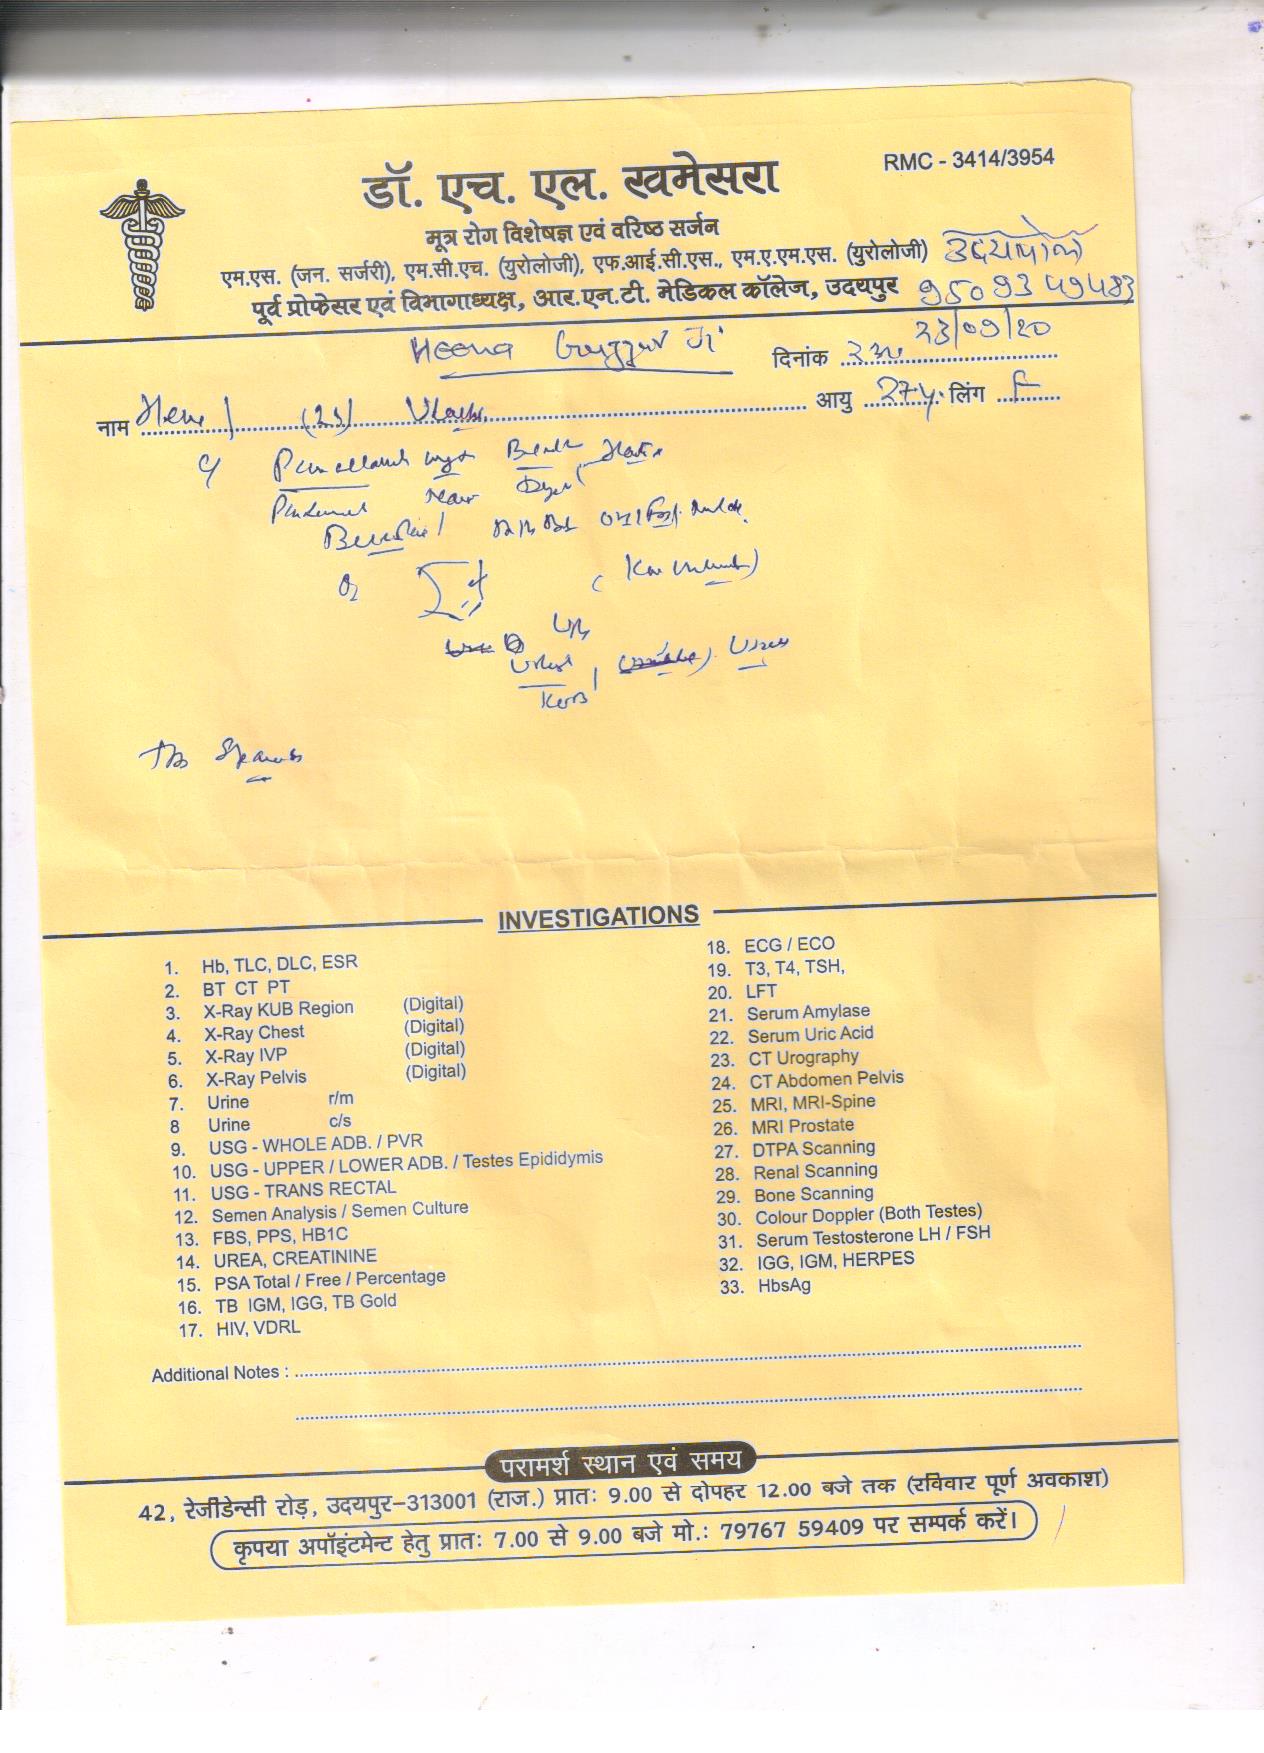 RMC - 3414/3954
डॉ. एच. एल. खमेसरा
मूत्र रोग विशेषज्ञ एवं वरिष्ठ सर्जन
एम.एस. (जन. सर्जरी), एम.सी.एच. (युरोलोजी), एफ.आई.सी.एस., एम.ए.एम.एस. (युरोलोजी) उदयपोल
पूर्व प्रोफेसर एवं विभागाध्यक्ष, आर.एन.टी. मेडिकल कॉलेज, उदयपुर 9509349483
Heena Gurjjar Ji
दिनांक 23/09/20
नाम आयु 27y. लिंग F
TB
INVESTIGATIONS
1. Hb, TLC, DLC, ESR
2. BT CT PT
3. X-Ray KUB Region (Digital)
4. X-Ray Chest (Digital)
5. X-Ray IVP (Digital)
6. X-Ray Pelvis (Digital)
7. Urine r/m
8 Urine c/s
9. USG - WHOLE ADB. / PVR
10. USG - UPPER / LOWER ADB. / Testes Epididymis
11. USG - TRANS RECTAL
12. Semen Analysis / Semen Culture
13. FBS, PPS, HB1C
14. UREA, CREATININE
15. PSA Total / Free / Percentage
16. TB IGM, IGG, TB Gold
17. HIV, VDRL
18. ECG / ECO
19. T3, T4, TSH,
20. LFT
21. Serum Amylase
22. Serum Uric Acid
23. CT Urography
24. CT Abdomen Pelvis
25. MRI, MRI-Spine
26. MRI Prostate
27. DTPA Scanning
28. Renal Scanning
29. Bone Scanning
30. Colour Doppler (Both Testes)
31. Serum Testosterone LH / FSH
32. IGG, IGM, HERPES
33. HbsAg
Additional Notes :
परामर्श स्थान एवं समय
42, रेजीडेन्सी रोड़, उदयपुर-313001 (राज.) प्रातः 9.00 से दोपहर 12.00 बजे तक (रविवार पूर्ण अवकाश)
कृपया अपॉइंटमेन्ट हेतु प्रातः 7.00 से 9.00 बजे मो.: 79767 59409 पर सम्पर्क करें।